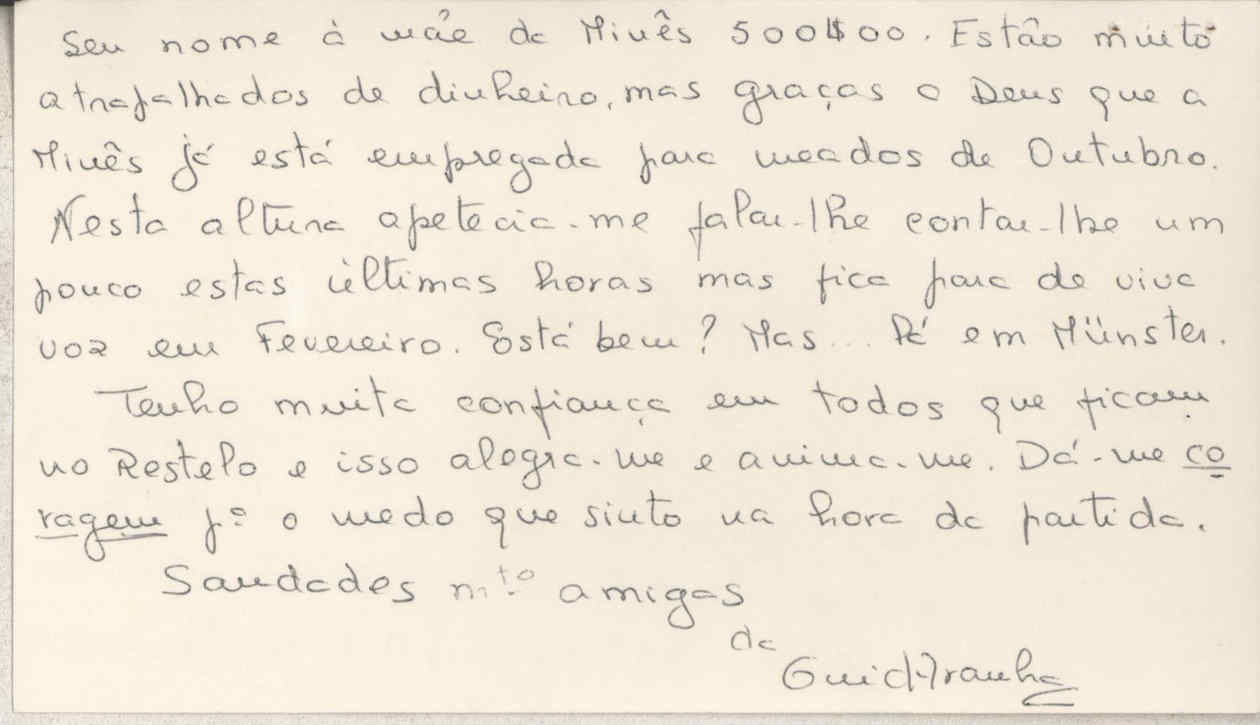 Seu nome à mãe da Minês 500$00. Estão muito
atrapalhados de dinheiro, mas graças a Deus que a
Minês já está empregada para meados de Outubro.
Nesta altura apetecia-me falar-lhe contar-lhe um
pouco estas últimas horas mas fica para de viva
voz em Fevereiro. Está bem? Mas... Lá em Münster.
Tenho muita confiança em todos que ficam
no Restelo e isso alegra-me e anima-me. Dá-me co
ragem pª o medo que sinto na hora da partida.
Saudades mtº amigas
da
Guida Aranha